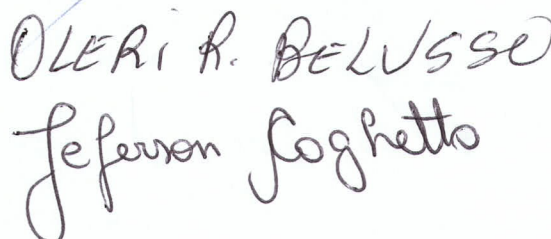 OLERI R. BELUSSO
Jeferson Coghetto